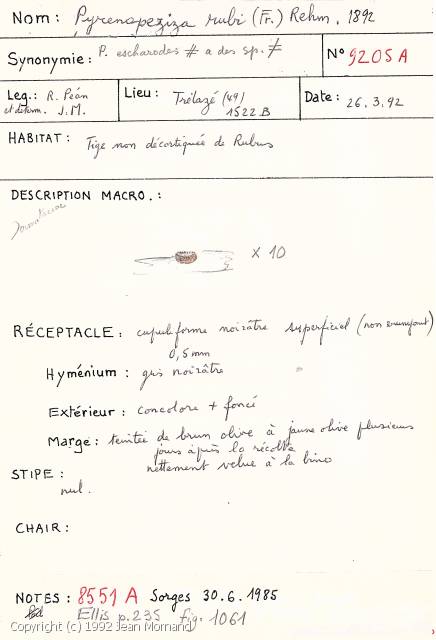 Nom : Pyrenopeziza rubi (Fr.) Rehm, 1892
Synonymie : P. escharodes # a des sp. ≠
N° 9205 A
Leg. : R. Péan
et déterm. J.M.
Lieu : Trélazé (49)
1522 B
Date : 26.3.92
HABITAT : Tige non décortiquée de Rubus
DESCRIPTION MACRO. :
x 10
RÉCEPTACLE : cupuliforme noirâtre superficiel (non érumpant)
0,5 mm
Hyménium : gris noirâtre
Extérieur : concolore + foncé
Marge : teintée de brun olive à jaune olive plusieurs
jours après la récolte
nettement velue à la bino
STIPE :
nul.
CHAIR :
NOTES : 8551 A Sorges 30.6.1985
Ellis p.235 fig. 1061
Copyright (c) 1992 Jean Mornand